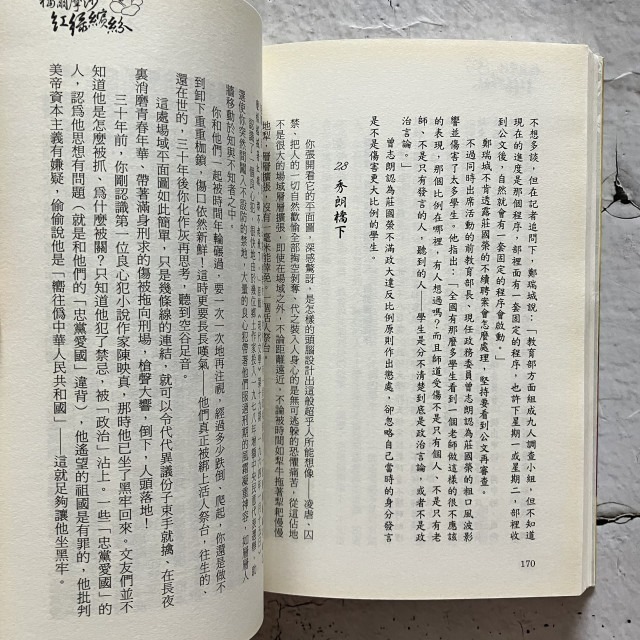 不想多談，但在記者追問下，鄭瑞城說：「教育部方面組成九人調查小組，但不知道
現在的進度是那個程序，部裡面有一套固定的程序，也許下星期一或星期二，部裡收
到公文後，自然就會有一套固定的程序會啟動。」
鄭瑞城不肯透露莊國榮的不續聘案會怎麼處理，堅持要看到公文再審查。
不過同時出席活動的前教育部長、現任政務委員曾志朗認為，莊國榮的粗口風波影
響並傷害了太多學生。他指出：「全國有那麼多學生看到一個老師做這樣的很不應該
的表現，那個比例在哪裡，有人想過嗎？而且師道受傷不是只有個人、不是只有老
師、不是只有發言的人，聽到的人——學生是分不清楚到底是政治言論，或者不是政
治言論。」
曾志朗認為莊國榮不滿政大違反比例原則作出懲處，卻忽略自己當時的身分發言
是不是傷害更大比例的學生。
28 秀朗橋下
你張開看它的平面圖，深感驚訝，是怎樣的頭腦設計出這般超乎人所能想像——凌虐、囚
禁、把人的一切自然歡愉全部掏空剝奪、代之裝入人身心的是無可逃躲的恐懼痛苦，從這佔地
不是很大的場域層層擴張，即使在場域之外，不論距離遠近，不論被時間如犁牛拖著犁耙慢慢
牆移動於知與不知者之中。
你和他們一起被時間年輪碾過，要一次一次地再注視，經過多少跌倒、爬起，你還是做不
到卸下重重枷鎖，傷口依然新鮮！這時更要長長嘆氣——他們真正被綁上活人祭台，往生的、
還在世的，三十年後你化作灰再思考，聽到空谷足音。
這處場域平面圖如此簡單，只是幾條線的連結，就可以令代代異議份子束手就擒、在長夜
裏消磨青春年華、帶著滿身刑求的傷被拖向刑場，槍聲大響，倒下，人頭落地！
三十年前，你剛認識第一位良心犯小說作家陳映真，那時他已坐了黑牢回來。文友們並不
知道他是怎麼被抓、為什麼被關？只知道他犯了禁忌，被「政治」沾上。一些「忠黨愛國」的
人，認為他思想有問題，就是和他們的「忠黨愛國」違背），他遙望的祖國是有罪的，他批判
美帝資本主義有嫌疑，偷偷說他是「嚮往偽中華人民共和國」——這就足夠讓他坐黑牢。
170
紅綠繽紛